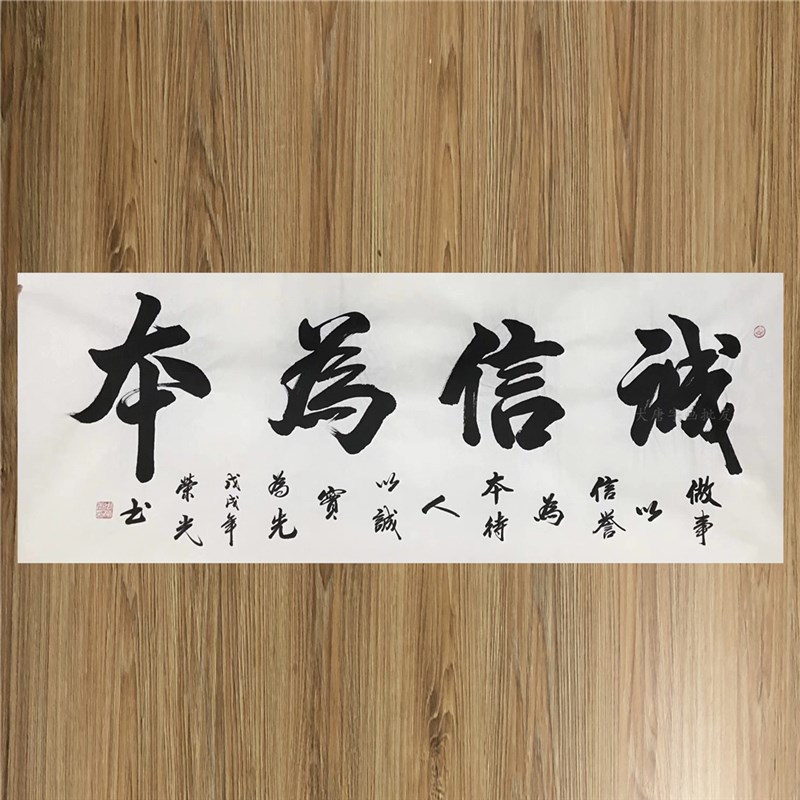 誠信為本
做事
以
信誉
為
本待
人
以誠
實
為先
戊戌年
榮光
书